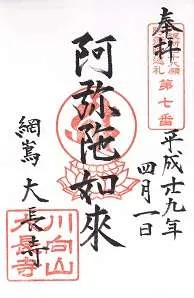 奉拝
第七番
平成廿九年
四月一日
阿弥陀如來
網嶌 大長寺
川向山
大長寺